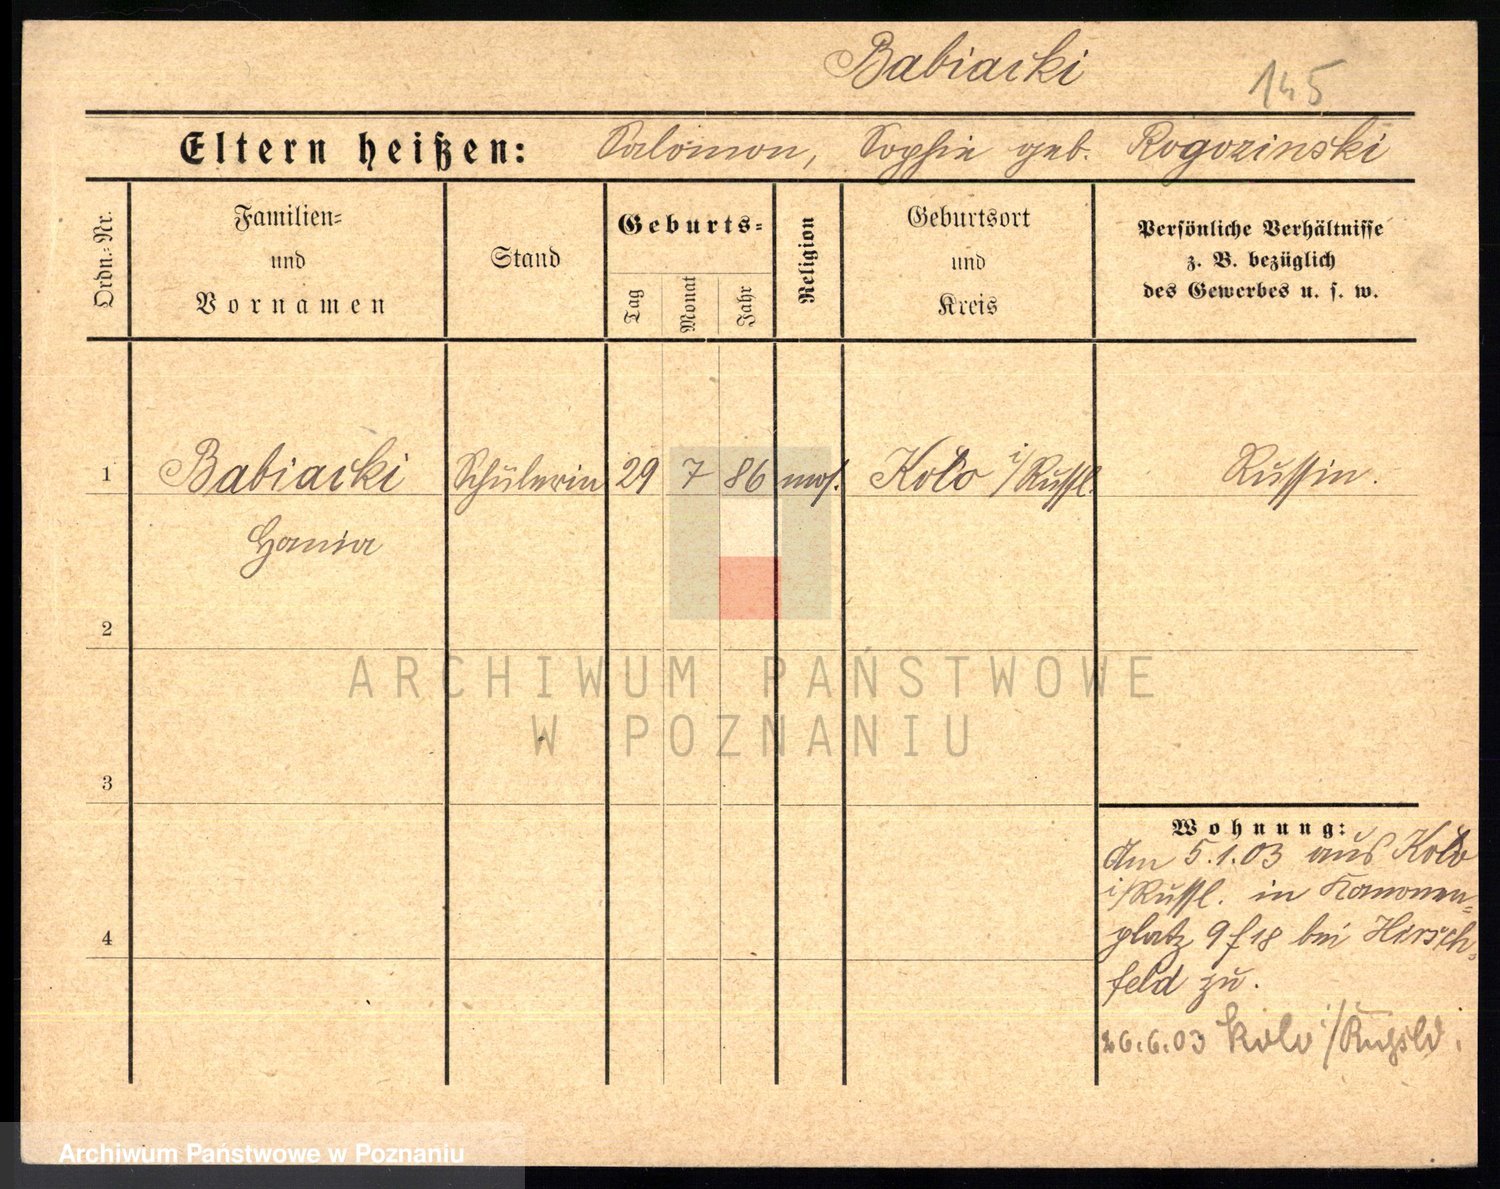 Babiacki
145
Eltern heißen: Salomon, Sophie geb. Rogozinski
Ordn.-Nr.
Familien-
und
Vornamen
Stand
Geburts-
Tag
Monat
Jahr
Religion
Geburtsort
und
Kreis
Persönliche Verhältnisse
z. B. bezüglich
des Gewerbes u. s. w.
1 Babiacki Schülerin 29 7 86 mos. Koło i/Russl. Russin.
Hania
2
ARCHIWUM PAŃSTWOWE
W POZNANIU
3
Wohnung:
Am 5.1.03 aus Koło
i/Russl. in Kanonen-
platz 9 f 18 bei Hirsch-
feld zu.
4
26.6.03 Kolo i/Rußld.
Archiwum Państwowe w Poznaniu